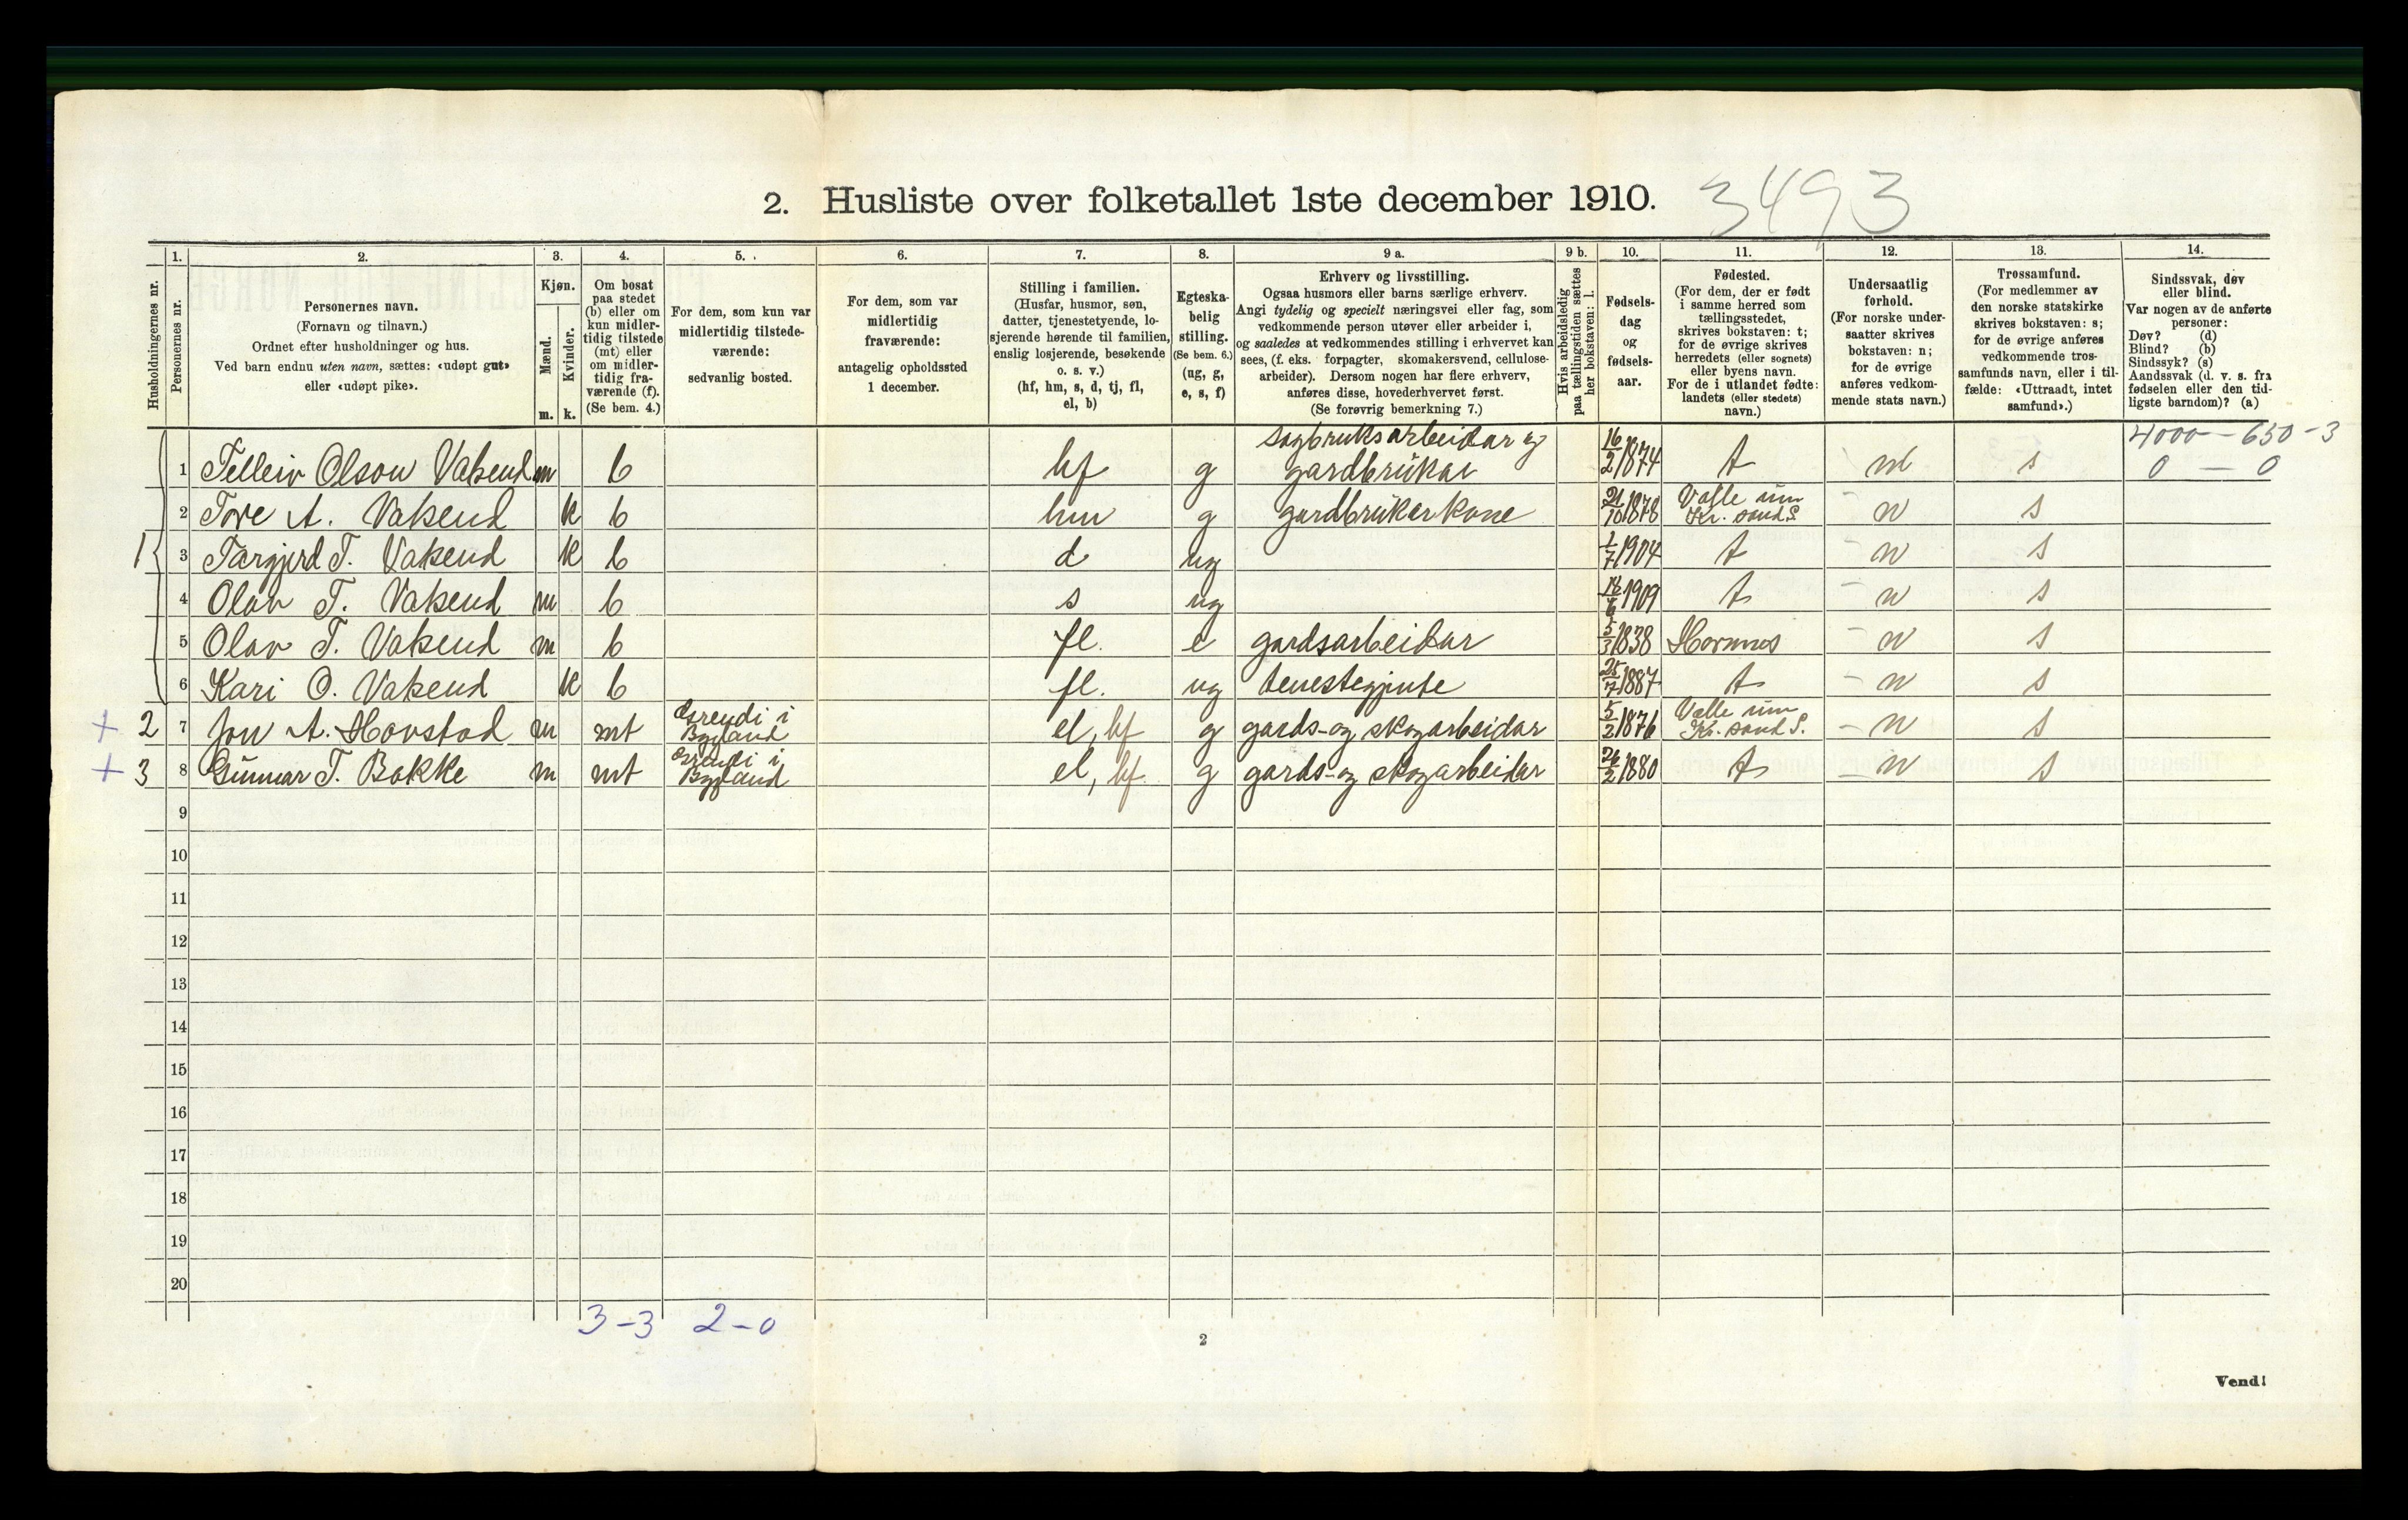 2. Husliste over folketallet 1ste december 1910. 3493
1. 2. 3. 4. 5. 6. 7. 8. 9 a. 9 b. 10. 11. 12. 13. 14.
Husholdningernes nr.
Personernes nr.
Personernes navn.
(Fornavn og tilnavn.)
Ordnet efter husholdninger og hus.
Ved barn endnu uten navn, sættes: «udøpt gut»
eller «udøpt pike».
Kjøn.
Mænd.
Kvinder.
m. k.
Om bosat
paa stedet
(b) eller om
kun midler-
tidig tilstede
(mt) eller
om midler-
tidig fra-
værende (f).
(Se bem. 4.)
For dem, som kun var
midlertidig tilstede-
værende:
sedvanlig bosted.
For dem, som var
midlertidig
fraværende:
antagelig opholdssted
1 december.
Stilling i familien.
(Husfar, husmor, søn,
datter, tjenestetyende, lo-
sjerende hørende til familien,
enslig losjerende, besøkende
o. s. v.)
(hf, hm, s, d, tj, fl,
el, b)
Egteska-
belig
stilling.
(Se bem. 6.)
(ug, g,
e, s, f)
Erhverv og livsstilling.
Ogsaa husmors eller barns særlige erhverv.
Angi tydelig og specielt næringsvei eller fag, som
vedkommende person utøver eller arbeider i,
og saaledes at vedkommendes stilling i erhvervet kan
sees, (f. eks. forpagter, skomakersvend, cellulose-
arbeider). Dersom nogen har flere erhverv,
anføres disse, hovederhvervet først.
(Se forøvrig bemerkning 7.)
Hvis arbeidsledig
paa tællingstiden sættes
her bokstaven: l.
Fødsels-
dag
og
fødsels-
aar.
Fødested.
(For dem, der er født
i samme herred som
tællingsstedet,
skrives bokstaven: t;
for de øvrige skrives
herredets (eller sognets)
eller byens navn.
For de i utlandet fødte:
landets (eller stedets)
navn.)
Undersaatlig
forhold.
(For norske under-
saatter skrives
bokstaven: n;
for de øvrige
anføres vedkom-
mende stats navn.)
Trossamfund.
(For medlemmer av
den norske statskirke
skrives bokstaven: s;
for de øvrige anføres
vedkommende tros-
samfunds navn, eller i til-
fælde: «Uttraadt, intet
samfund».)
Sindssvak, døv
eller blind.
Var nogen av de anførte
personer:
Døv? (d)
Blind? (b)
Sindssyk? (s)
Aandssvak (d. v. s. fra
fødselen eller den tid-
ligste barndom)? (a)
sagbruksarbeidar og 4000 - 650 - 3
1 Telleiv Olson Vatsend m b hf g gardbrukar 16/2 1874 t n s 0 - 0
2 Tore A. Vatsend k b hm g gardbrukarkone 21/10 1878 Valle um Kr. sand S. n s
1 3 Targjerd T. Vatsend k b d ug 1/7 1904 t n s
4 Olav T. Vatsend m b s ug 14/6 1909 t n s
5 Olav T. Vatsend m b fl. e gardsarbeidar 5/3 1838 Hornnes n s
6 Kari O. Vatsend k b fl. ug tenestegjente 25/7 1887 t n s
+ 2 7 Jon A. Hovstad m mt Osrendi i Bygland el, hf g gards- og skogarbeidar 5/2 1876 Valle um Kr. sand S. n s
+ 3 8 Gunnar T. Bakke m mt Osrendi i Bygland el, hf g gards- og skogarbeidar 26/2 1880 t n s
9
10
11
12
13
14
15
16
17
18
19
20
3 - 3 2 - 0
2
Vend!